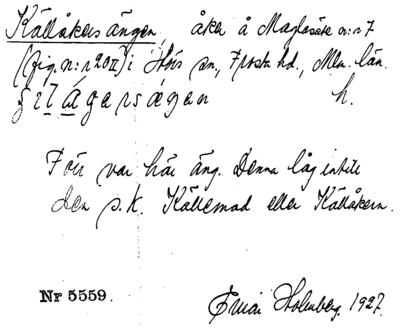 Källåkersängen, åker å Maglasäte n:r 7
(fig. n:r 20 II) i Höörs sn, Frosta hd, Mlm. län.
h.
Förr var här äng. Denna låg intill
den s.k. Källemad eller Källåkern.
Nr 5559. Holmberg. 1927.